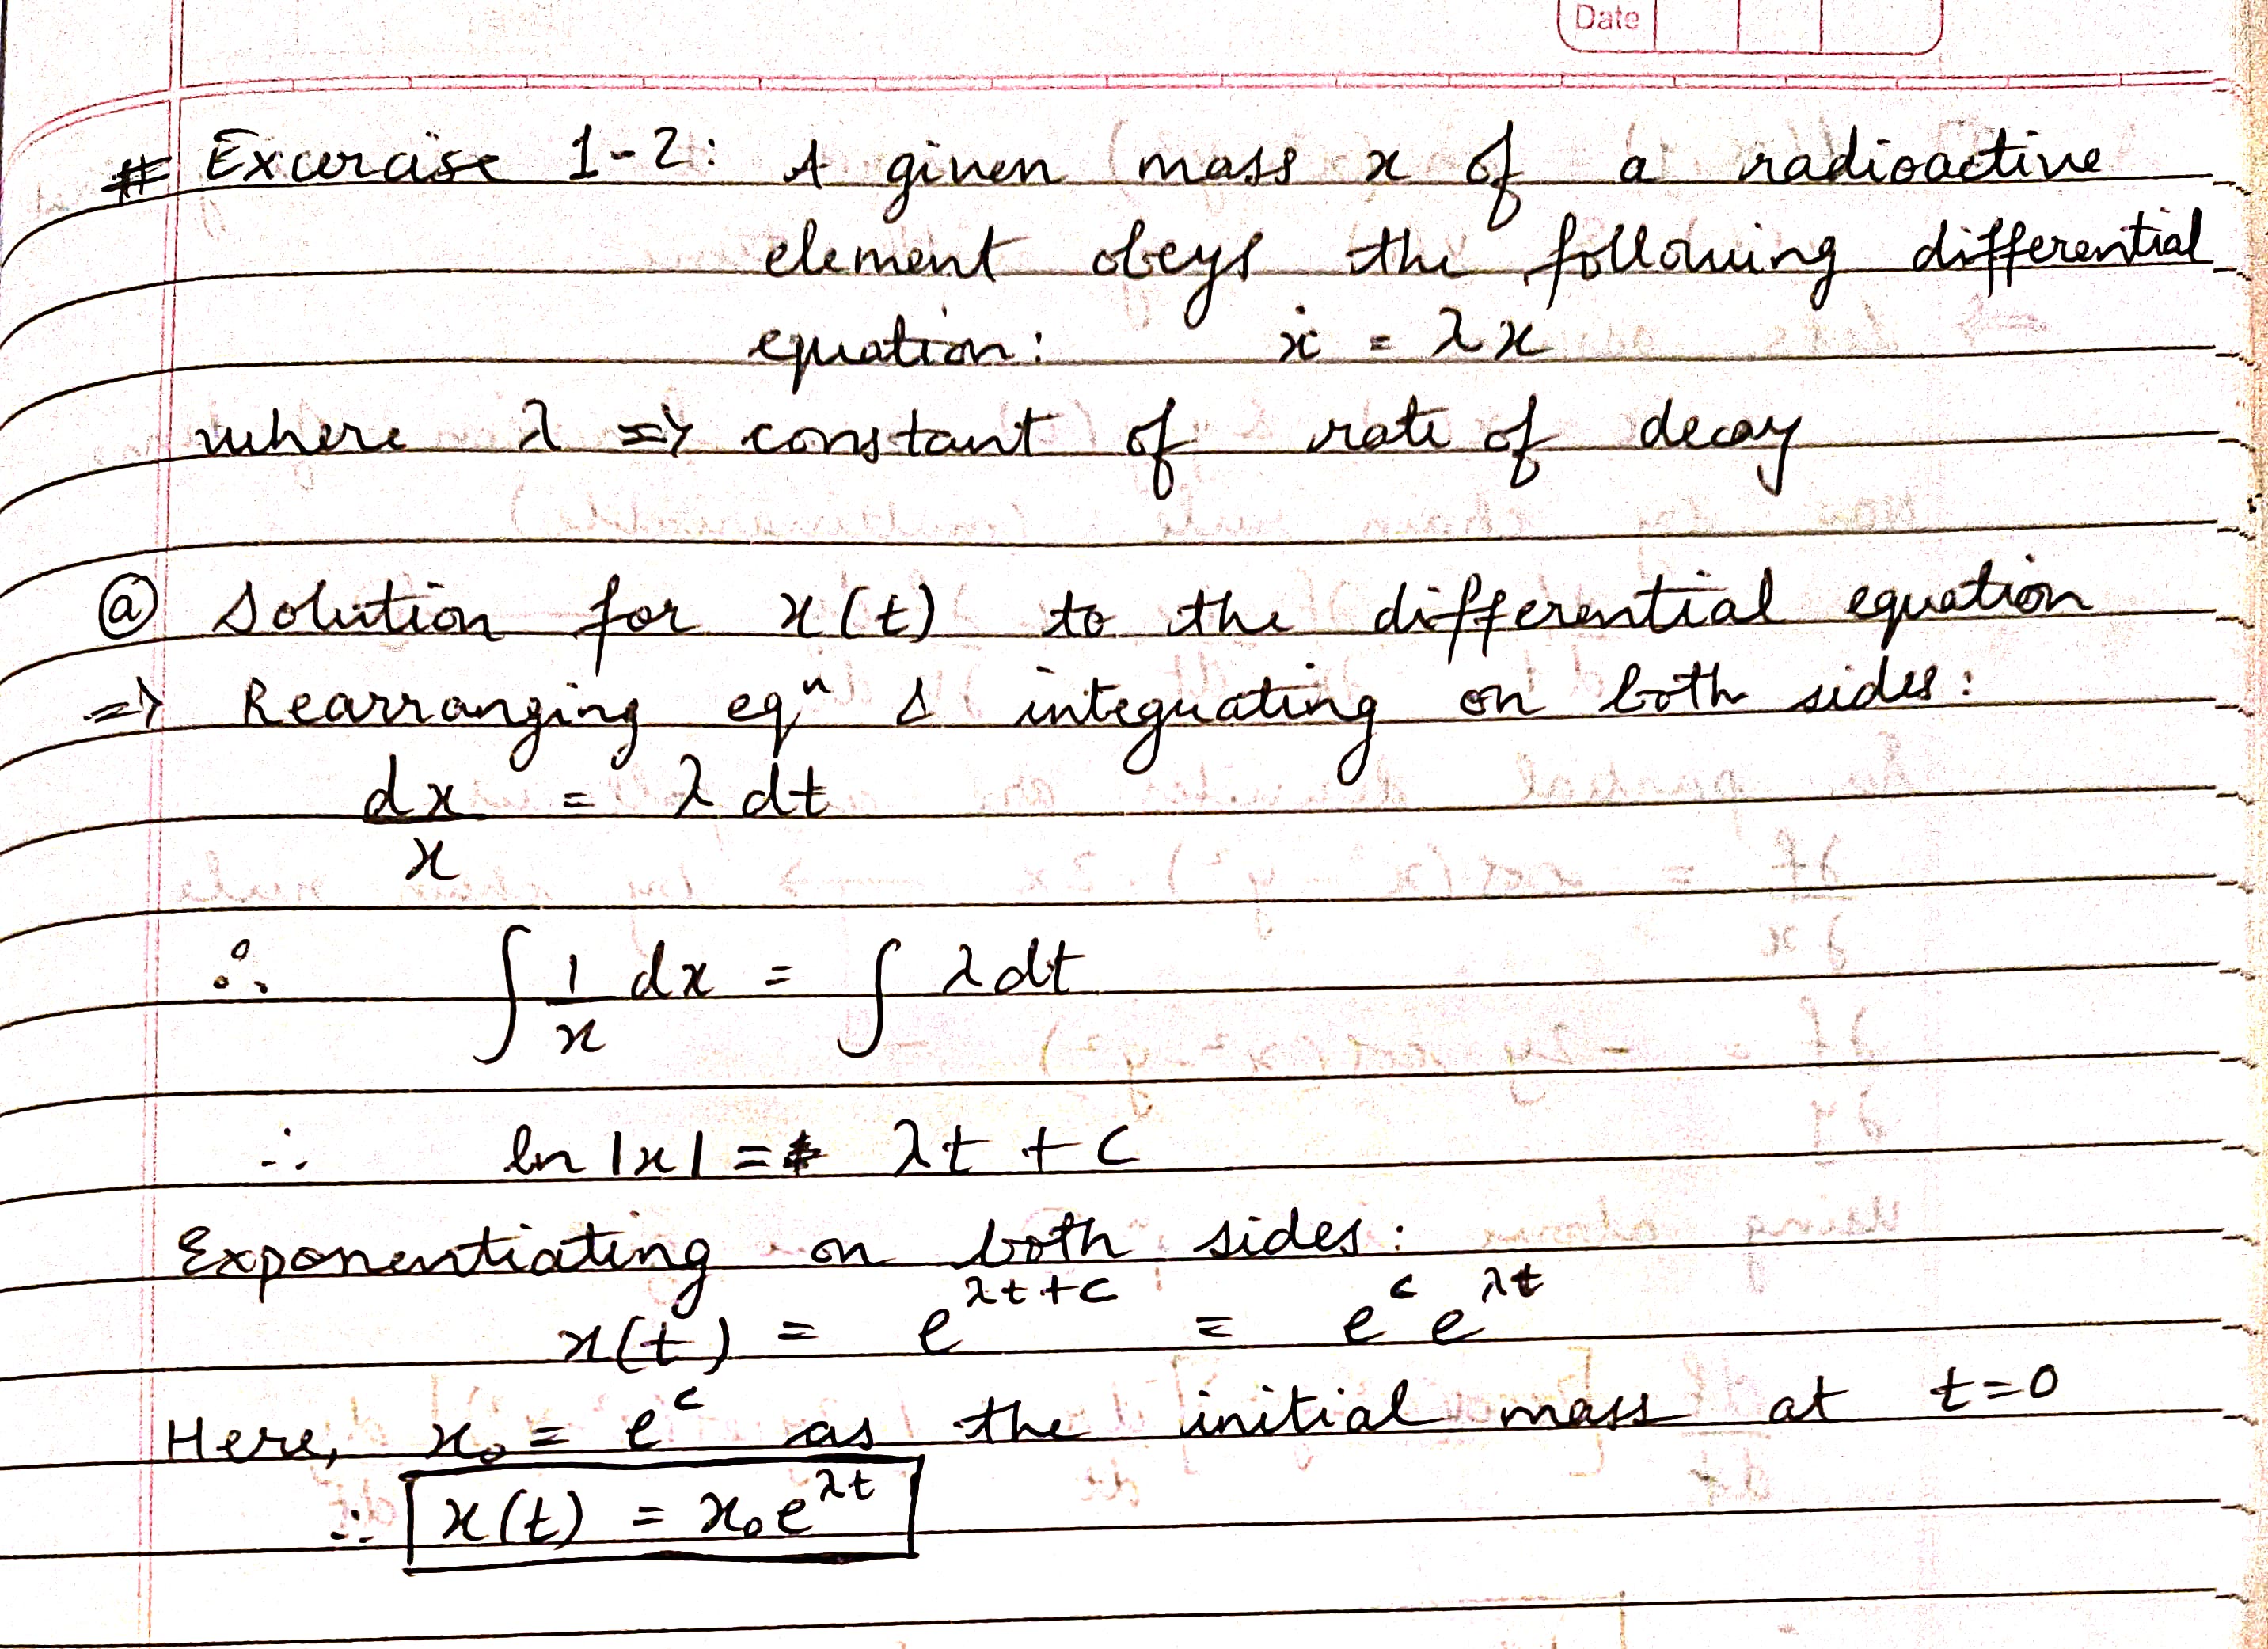 Date
# Excercise 1-2: A given mass x of a radioactive
element obeys the following differential
equation: ẋ = λx
where λ => constant of rate of decay
ⓐ Solution for x(t) to the differential equation
=> Rearranging eqⁿ & integrating on both sides:
dx/x = λ dt
∴ ∫ 1/x dx = ∫ λ dt
∴ ln |x| = λt + c
Exponentiating on both sides:
x(t) = e^(λt+c) = e^c e^(λt)
Here, x₀ = e^c as the initial mass at t=0
∴ x(t) = x₀e^(λt)